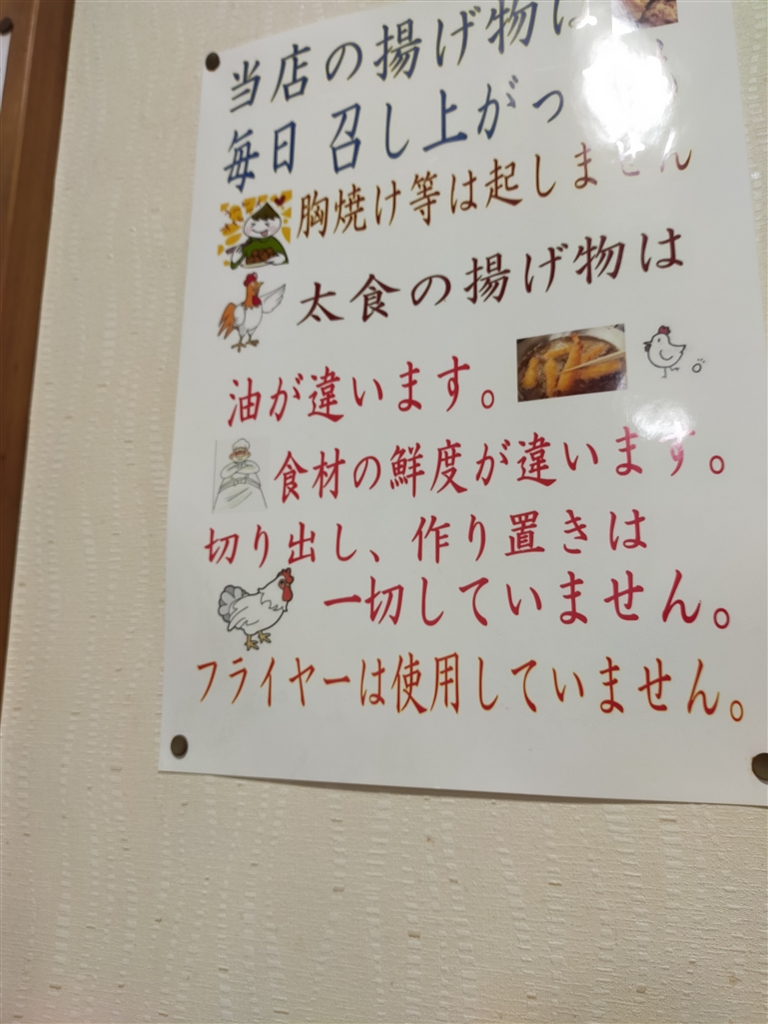 当店の揚げ物は
毎日 召し上がっ
胸焼け等は起しません
太食の揚げ物は
油が違います。
食材の鮮度が違います。
切り出し、作り置きは
一切していません。
フライヤーは使用していません。